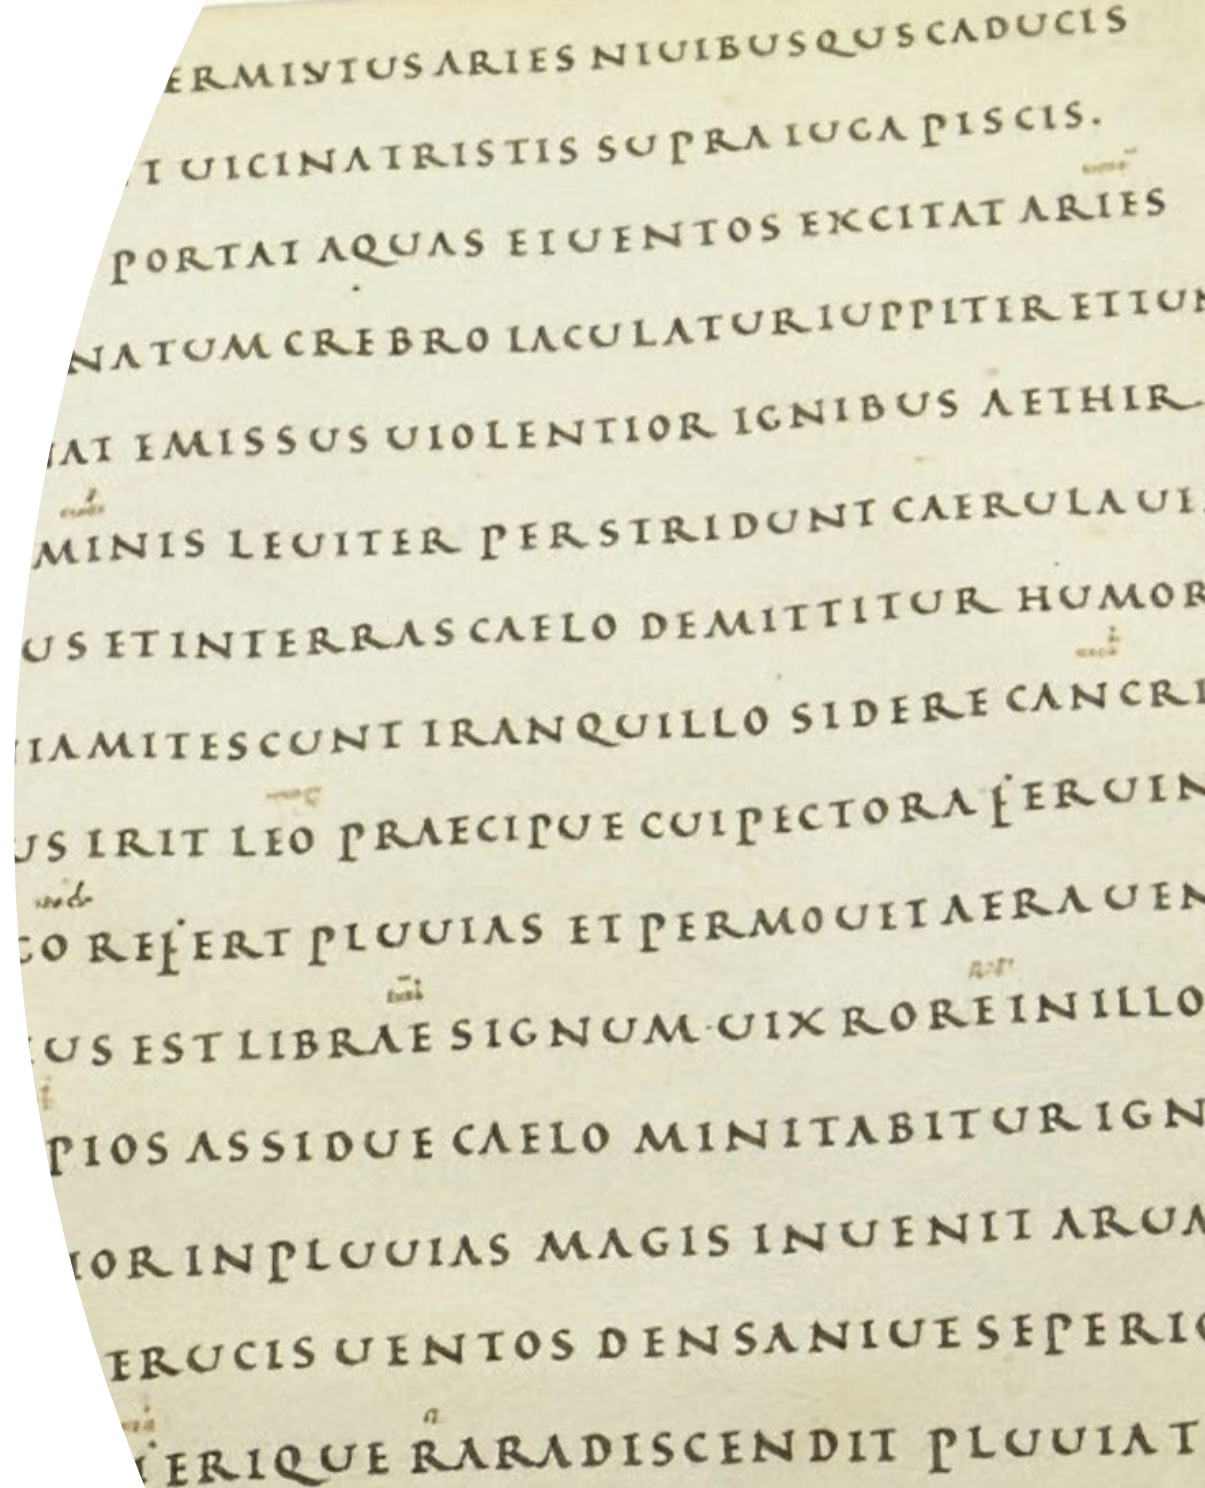 ERMIXTUS ARIES NIUIBUSQUS CADUCIS
UICINA TRISTIS SUPRA IUGA PISCIS.
PORTAT AQUAS ET UENTOS EXCITAT ARIES
NATUM CREBRO IACULATUR IUPPITIR ET IUN
NAT EMISSUS UIOLENTIOR IGNIBUS AETHIR
MINIS LEUITER PERSTRIDUNT CAERULA UE
US ET IN TERRAS CAELO DEMITTITUR HUMOR
IA MITESCUNT TRANQUILLO SIDERE CANCRI
US IRIT LEO PRAECIPUE CUI PECTORA FERUIN
CO REFERT PLUUIAS ET PERMOUET AERA UEN
US EST LIBRAE SIGNUM·UIX RORE IN ILLO
PIOS ASSIDUE CAELO MINITABITUR IGN
IOR IN PLUUIAS MAGIS INUENIT ARUA
ERUCIS UENTOS DENSA NIUESE PERIC
ERIQUE RARA DISCENDIT PLUUIA T